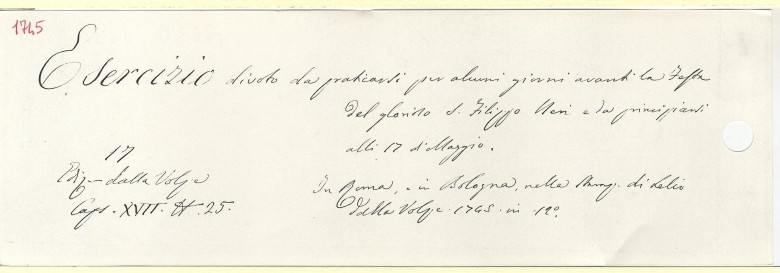 1745
Esercizio divoto da praticarsi per alcuni giorni avanti la Festa
del glorioso S. Filippo Neri e da principiarsi
alli 17 di Maggio.
17
Ediz. dalla Volpe
Caps. XVII. H. 25.
In Roma, e in Bologna, nella Stamp. di Lelio
dalla Volpe. 1745. in 12º.